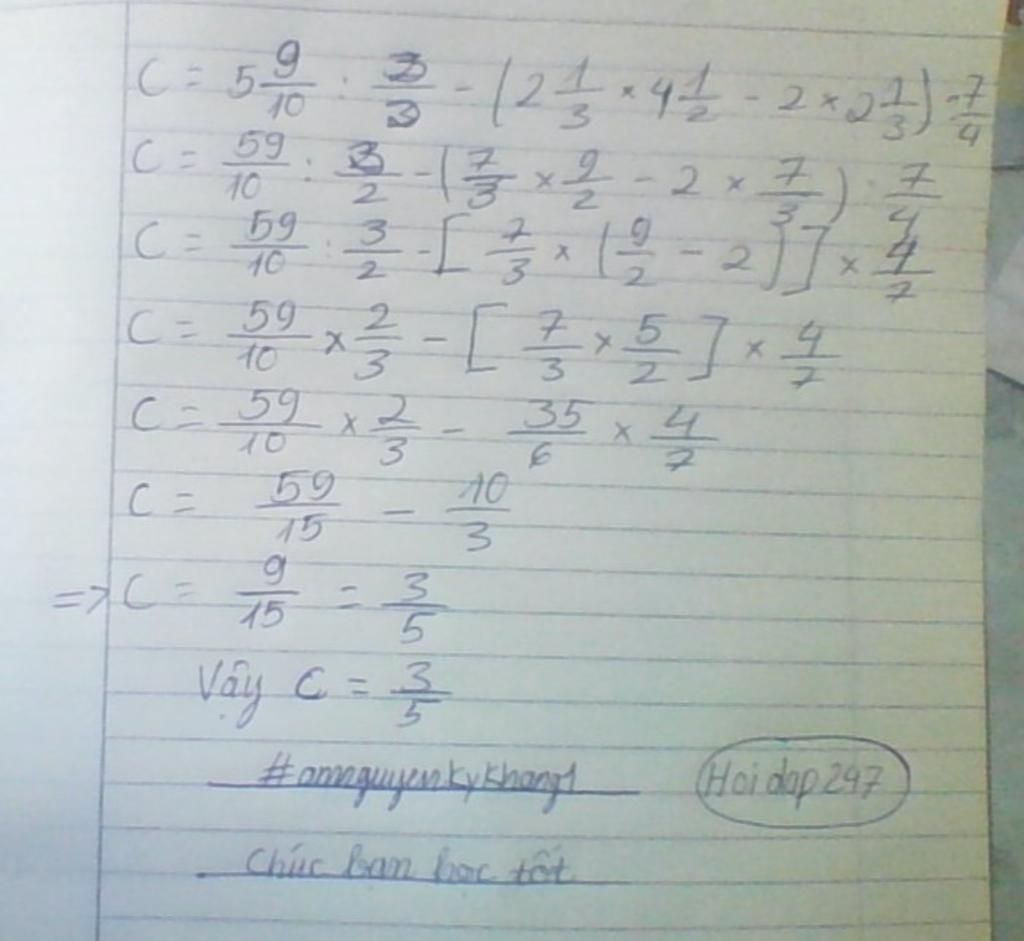 C = 5 9/10 : 3/2 - (2 1/3 × 4 1/2 - 2 × 2 1/3) : 7/4
C = 59/10 : 3/2 - (7/3 × 9/2 - 2 × 7/3) : 7/4
C = 59/10 : 3/2 - [ 7/3 × (9/2 - 2)] × 4/7
C = 59/10 × 2/3 - [ 7/3 × 5/2 ] × 4/7
C = 59/10 × 2/3 - 35/6 × 4/7
C = 59/15 - 10/3
=> C = 9/15 = 3/5
Vậy C = 3/5
#amnguyenkykhang1 Hoidap247
Chúc bạn học tốt